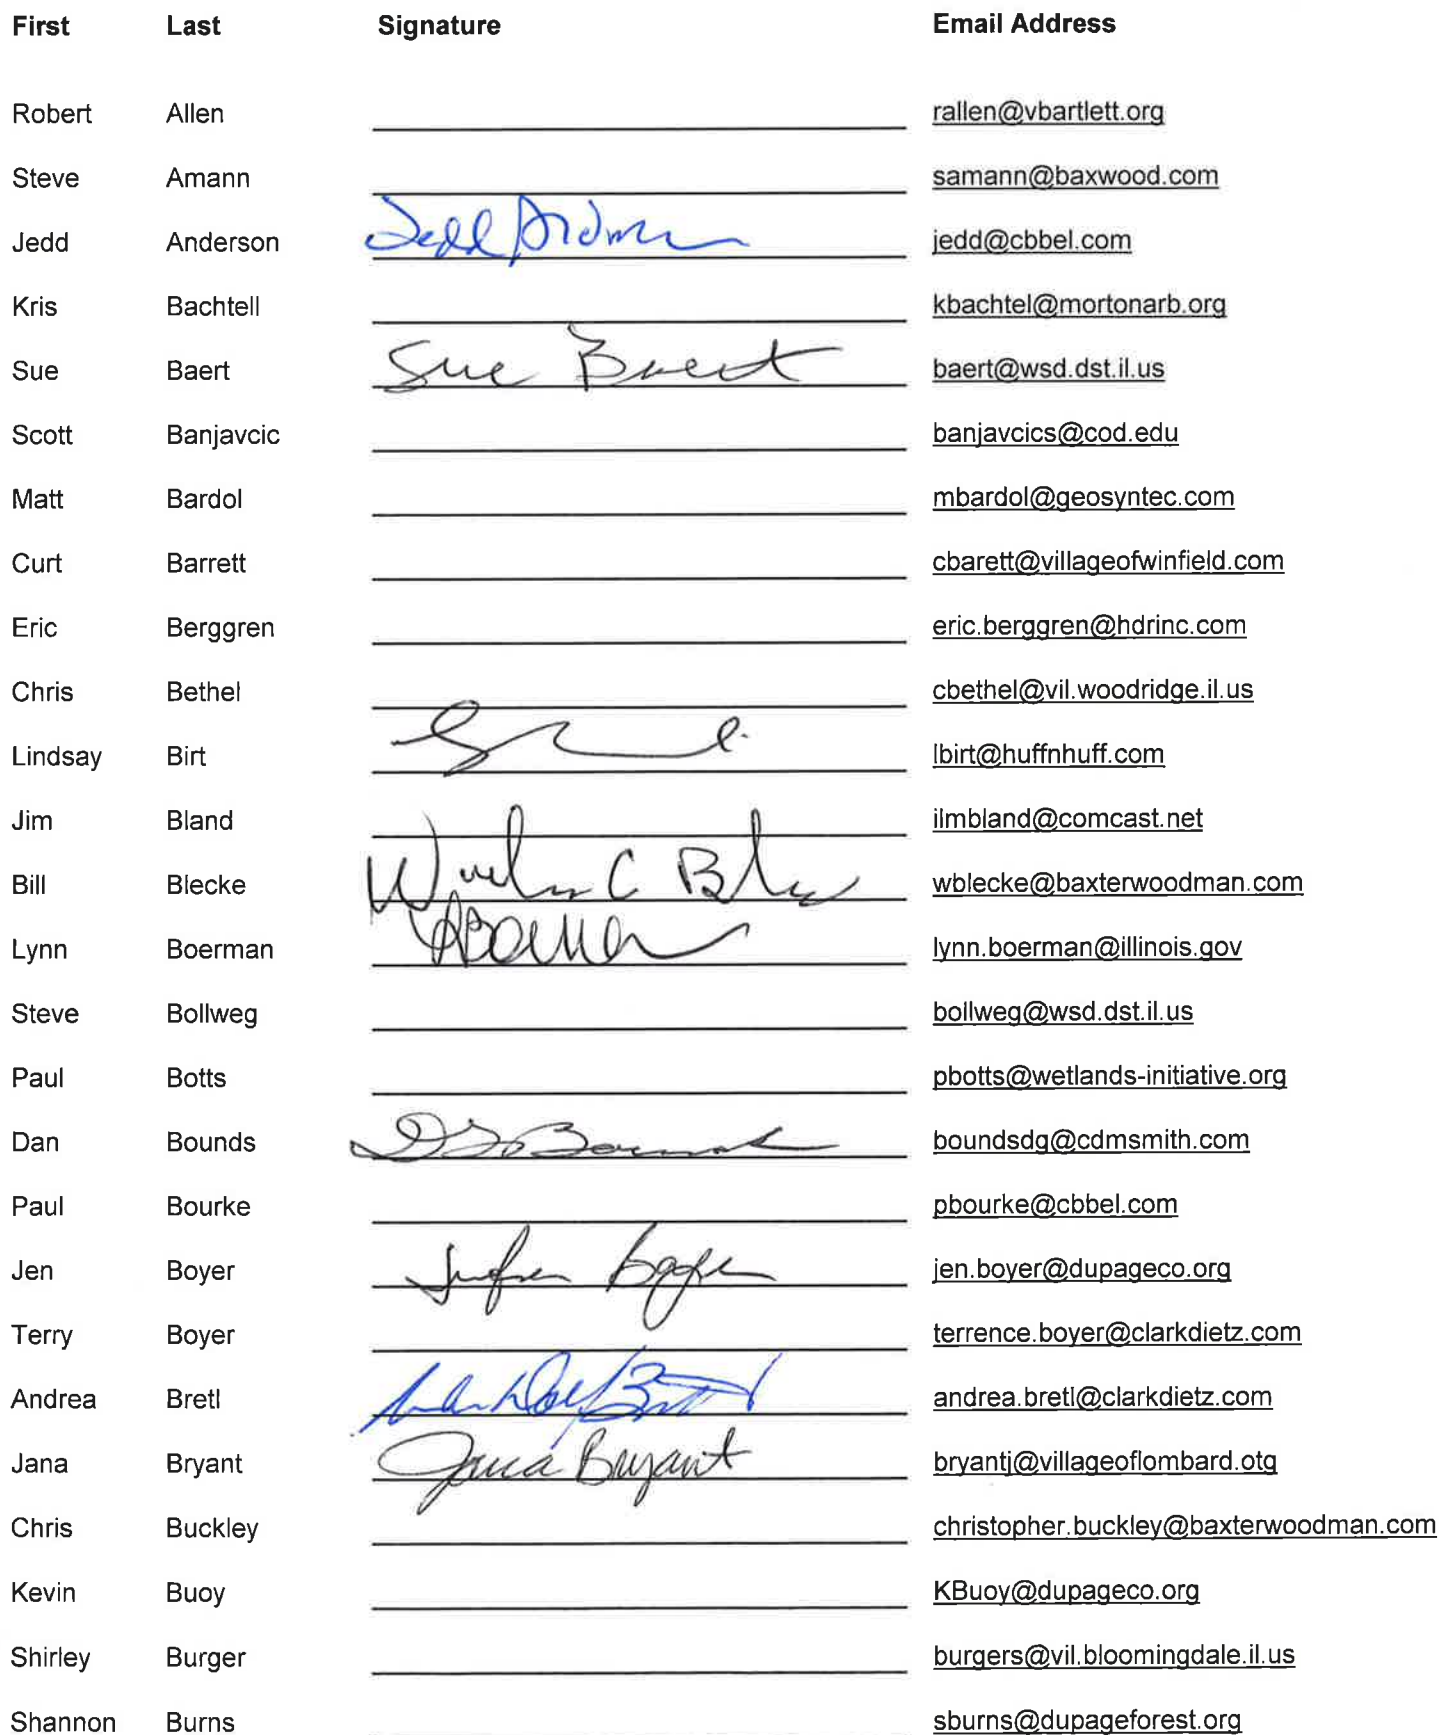 First Last Signature Email Address
Robert Allen rallen@vbartlett.org
Steve Amann samann@baxwood.com
Jedd Anderson Jedd jedd@cbbel.com
Kris Bachtell kbachtel@mortonarb.org
Sue Baert Sue Baert baert@wsd.dst.il.us
Scott Banjavcic banjavcics@cod.edu
Matt Bardol mbardol@geosyntec.com
Curt Barrett cbarett@villageofwinfield.com
Eric Berggren eric.berggren@hdrinc.com
Chris Bethel cbethel@vil.woodridge.il.us
Lindsay Birt lbirt@huffnhuff.com
Jim Bland ilmbland@comcast.net
Bill Blecke C wblecke@baxterwoodman.com
Lynn Boerman lynn.boerman@illinois.gov
Steve Bollweg bollweg@wsd.dst.il.us
Paul Botts pbotts@wetlands-initiative.org
Dan Bounds boundsdg@cdmsmith.com
Paul Bourke pbourke@cbbel.com
Jen Boyer jen.boyer@dupageco.org
Terry Boyer terrence.boyer@clarkdietz.com
Andrea Bretl andrea.bretl@clarkdietz.com
Jana Bryant Jana Bryant bryantj@villageoflombard.otg
Chris Buckley christopher.buckley@baxterwoodman.com
Kevin Buoy KBuoy@dupageco.org
Shirley Burger burgers@vil.bloomingdale.il.us
Shannon Burns sburns@dupageforest.org